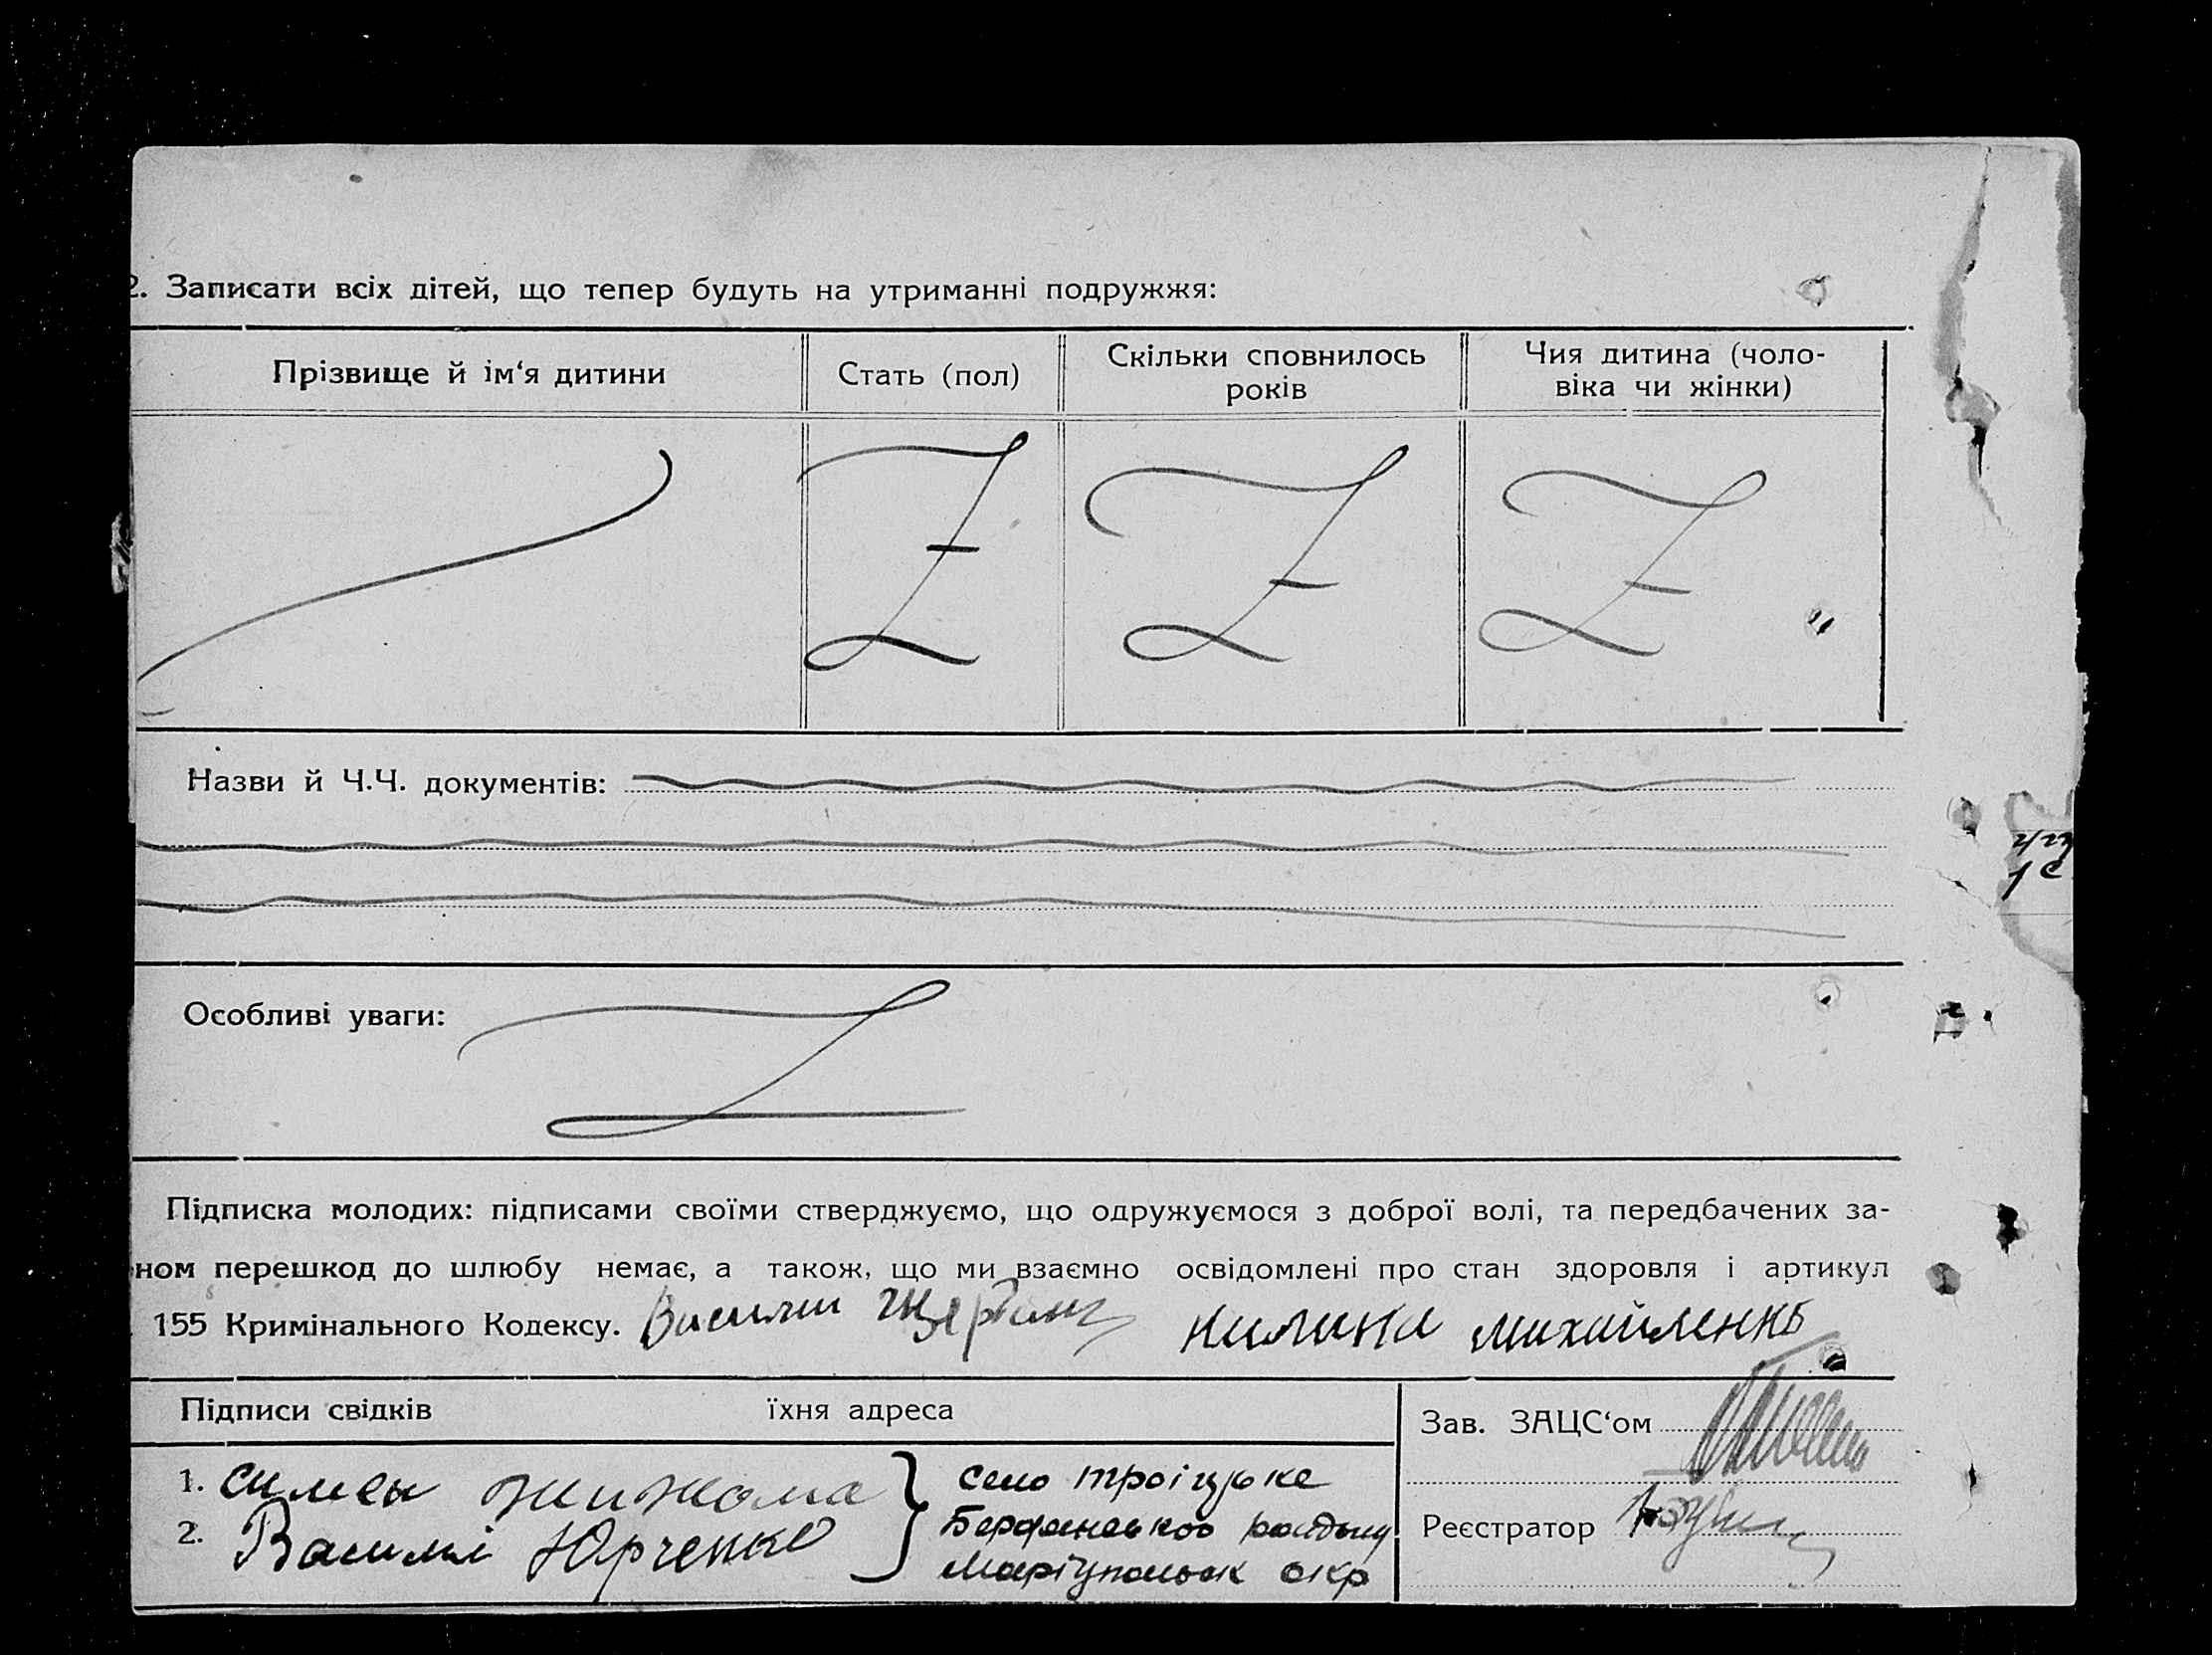 2. Записати всіх дітей, що тепер будуть на утриманні подружжя:
Прізвище й ім‘я дитини
Стать (пол)
Скільки сповнилось
років
Чия дитина (чоло-
віка чи жінки)
Назви й Ч.Ч. документів:
Особливі уваги:
Підписка молодих: підписами своїми стверджуємо, що одружуємося з доброї волі, та передбачених за-
ном перешкод до шлюбу немає, а також, що ми взаємно освідомлені про стан здоровля і артикул
155 Кримінального Кодексу. Василий Михайленко
Підписи свідків їхня адреса
Зав. ЗАЦС‘ом
1. Симен село троіцьке
2. Василь Юрченко
Маріупольск окр
Реєстратор